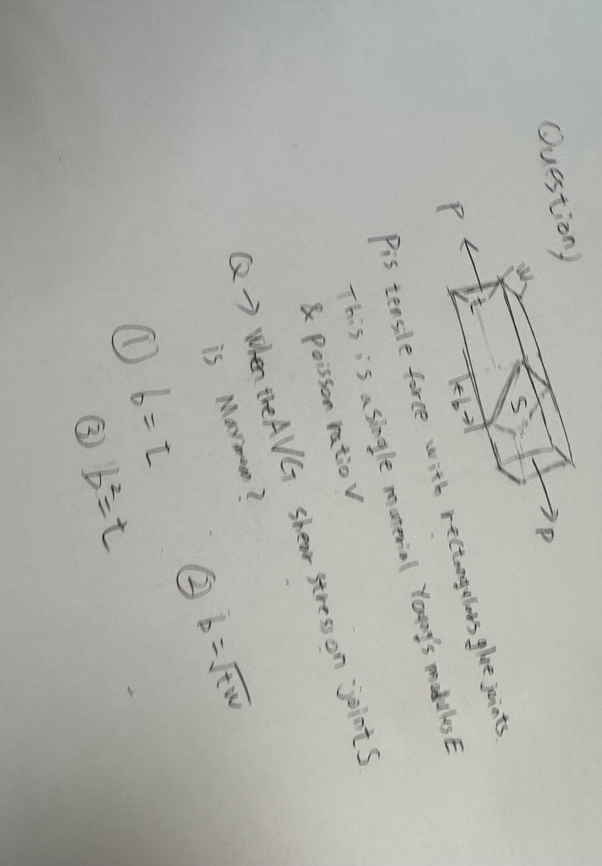 Question)
P
w
t
S
b
P
P is tensile force with rectangulars glue joints.
This is a single material Young's modulus E
& poisson ratio V
Q → when the AVG shear stress on joint S
is Maximum?
① b = t
② b = √tw
③ b² = t